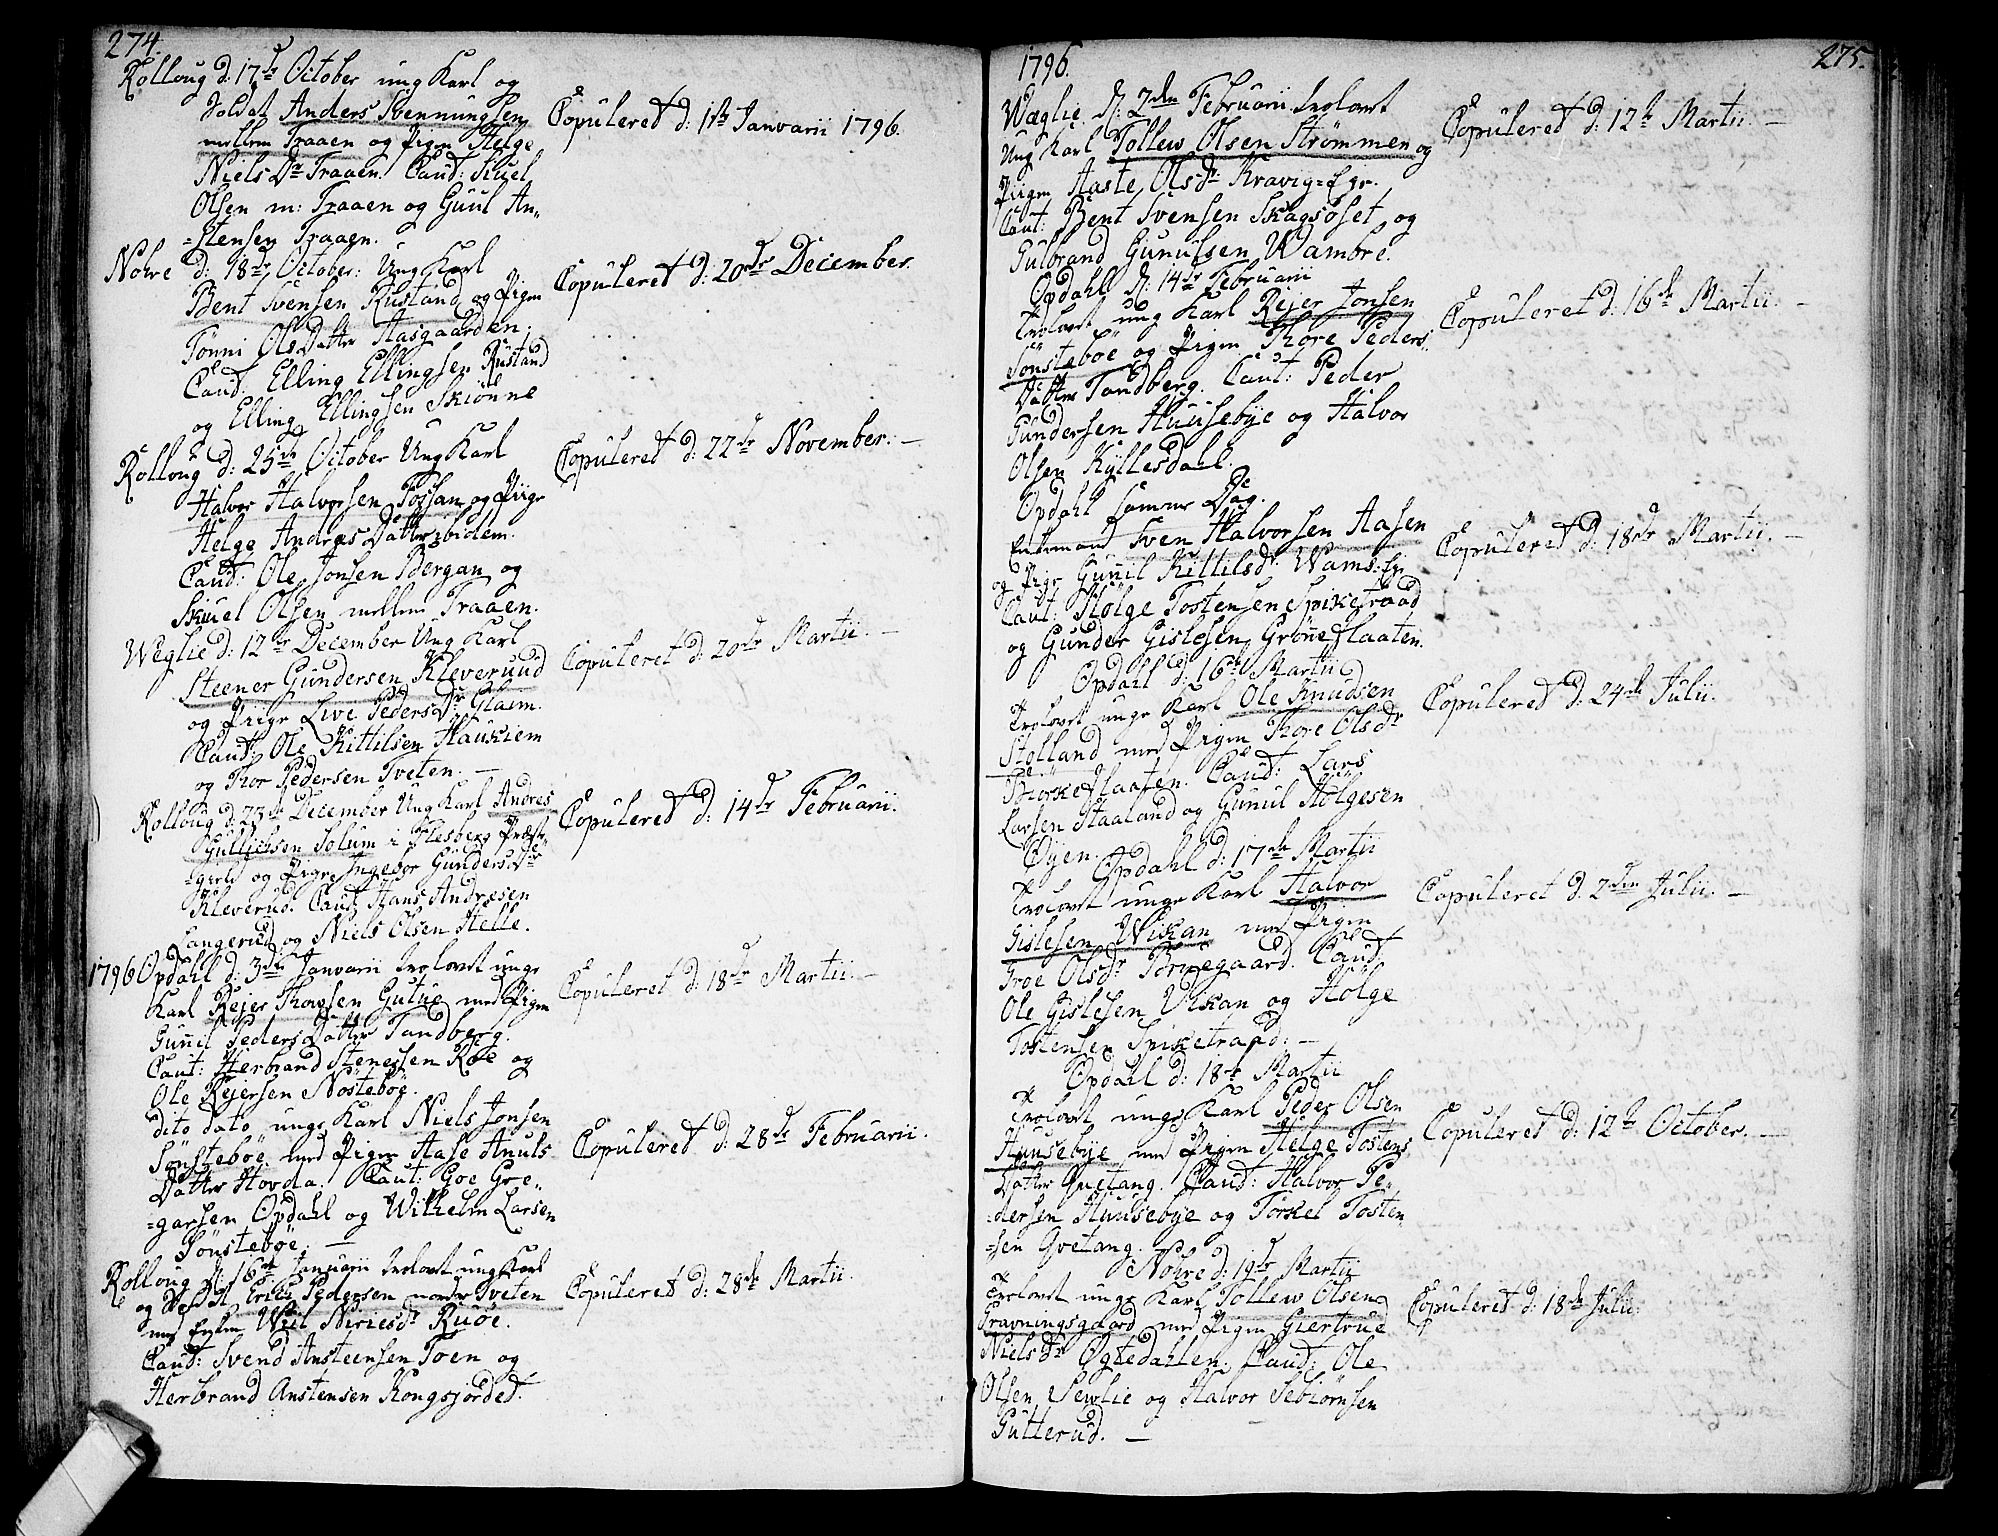 274.
Rolloug d: 17de October ung Karl og
Soldat Anders Svennungsen
mellem Traaen og Pigen Helge
Niels Dr Traaen. Caud: Skuel
Olsen m: Traaen og Guul An„
„stensen Traaen.
Copuleret d: 1ste Janvarii 1796.
Nohre d: 18de October: Ung Karl
Bent Svensen Rustand og Pigen
Tönni OlsDatter Aasgaarden.
Caud: Elling Ellingsen Rustand
og Elling Ellingsen Skiönne
Copuleret d: 20de December.
Rolloug d: 25de October Ung Karl
Halvor Halvorsen Fossan og Piige
Helge AndresDatter ibidem.
Caud: Ole Jonsen Bergan og
Skuel Olsen mellem Traaen.
Copuleret d: 22de November. —
Weglie d: 12te December Ung Karl
Steener Gundersen Kleveruud
og Piige Live PedersDr Glaim.
Caud: Ole Kittilsen Haukiem
og Thor Pedersen Tveten. —
Copuleret d: 20de Martii. —
Rolloug d: 23de December Ung Karl Andres
Gullichsen Solum i Flesberg Præste
„gield og Pige Ingebor GundersDr
Kleverud. Caut Hans Andresen
Langerud og Niels Olsen Helle.
Copuleret d: 14de Februarii.
1796 Opdahl d: 3die Janvarii trolovet unge
Karl Rejer Thovsen Gutue med Pigen
Gunil PedersDatter Tandberg.
Caut: Herbrand Stenersen Röe og
Ole Rejersen Nöstebøe.
Copuleret d: 18de Martii. —
dito dato unge Karl Niels Jonsen
Sönstebøe med Pigen Aase Anuls
Datter Hovda. Caut: Goe Gre„
„garsen Opdahl og Wilhelm Larsen
Sönstebøe. —
Copuleret d: 28de Februarii.
Rolloug d: 16de Januarii trolovet ung Karl
og Soldat Erik Pedersen nordre Tveten
med Enken Ruöe.
Caud: Svend Ansteensen Toen og
Herbrand Anstensen Kongsjordet.
Copuleret d: 28de Martii.
1796.
275.
Wæglie d: 2den Februarii trolovet
Ung Karl Tollew Olsen Strømmen og
Piigen Aaste Olsdr Kravig=Eyr.
Caut: Bent Svensen Skagsöset og
Gulbrand Gunulsen Wambre.
Copuleret d: 12te Martii. —
Opdahl d: 14de Februarii
trolovet ung Karl Rejer Jonsen
Sönsteböe og Pigen Thore Peders„
Datter Tandberg. Caut: Peder
Gundersen Huusebye og Halvor
Olsen Kyllesdahl.
Copuleret d: 16de Martii. —
Opdahl samme Dag.
Enkemand Sven Halvorsen Aasen
og Pige Gunil Kittilsdr Wams:Eyr
Caut: Holge Tostensen Spiketraad
og Gunder Gislesen Grøneflaaten.
Copuleret d: 18de Martii. —
Opdahl d: 16de Martii
trolovet unge Karl Ole Knudsen
Stolland med Pigen Thore Olsdr
Börkeflaaten. Caud: Lars
Larsen Haaland og Gunul Holgesen
Öyen.
Copuleret d: 24de Julii.
Opdahl d: 17de Martii
trolovet unge Karl Halvor
Gislesen Wikan med Pigen
Groe Olsdr Börtegaard. Caud:
Ole Gislesen Vikan og Holge
Tostensen Spiketraad: —
Copuleret d. 2den Julii. —
Opdahl d: 18de Martii
trolovet unge Karl Peder Olsen
Huusebye med Pigen Helge Tostens
Datter Qvetang. Caud: Halvor Pe„
„dersen Huusebye og Torkel Tosten„
„sen Qvetang.
Copuleret d: 12te October. —
Nohre d: 19de Martii
trolovet unge Karl Tollew Olsen
Gravningsgaard med Pigen Giertrue
Nielsdr Ögtedahlen. Caud: Ole
Olsen Sewlie og Halvor Sebiörnsen
Gutterud. —
Copuleret d: 18de Julii.